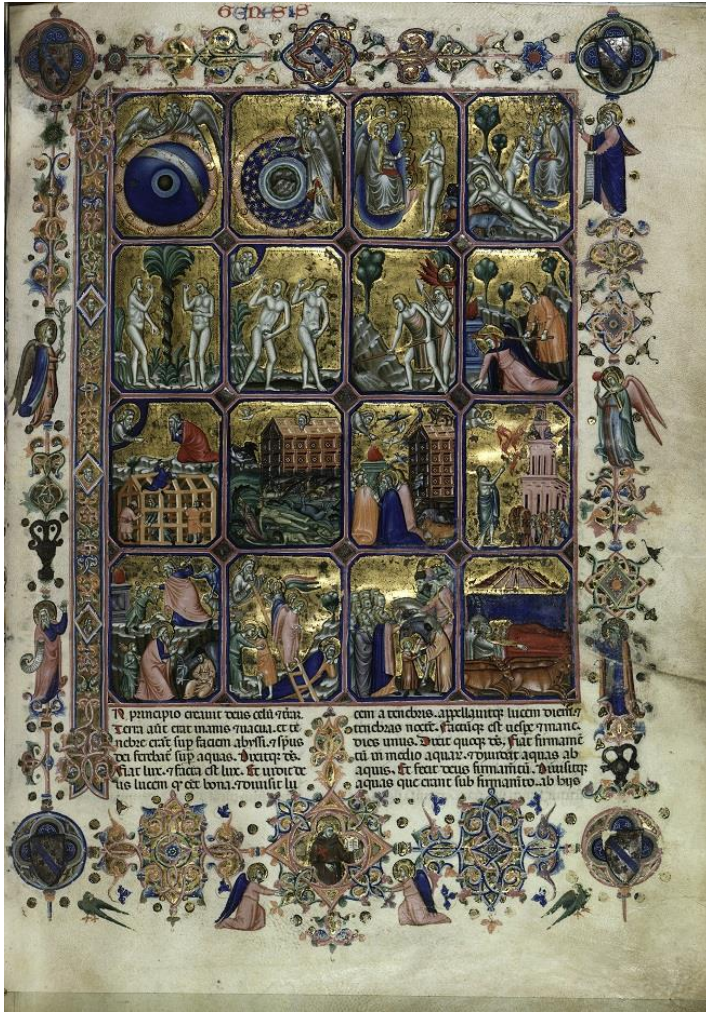 GENESIS
N principio creavit deus celū ⁊ terrā.
Terra aūt erat inanis ⁊ vacua. et te
nebre erāt sup faciem abyssi. ⁊ sp̄us
dei ferebat sup aquas. Dixitqꝫ d̄s.
Fiat lux. ⁊ facta est lux. Et vidit de
us lucem qꝫ eēt bona. ⁊ divisit lu
cem a tenebris. appellavitqꝫ lucem diem ⁊
tenebras nocte. Factūqꝫ est vespe ⁊ mane.
dies unus. Dixit quoqꝫ d̄s. Fiat firmamē
tū in medio aquaꝝ. ⁊ dividat aquas ab
aquis. Et fecit deus firmamētū. Divisitqꝫ
aquas que erant sub firmamēto. ab hys